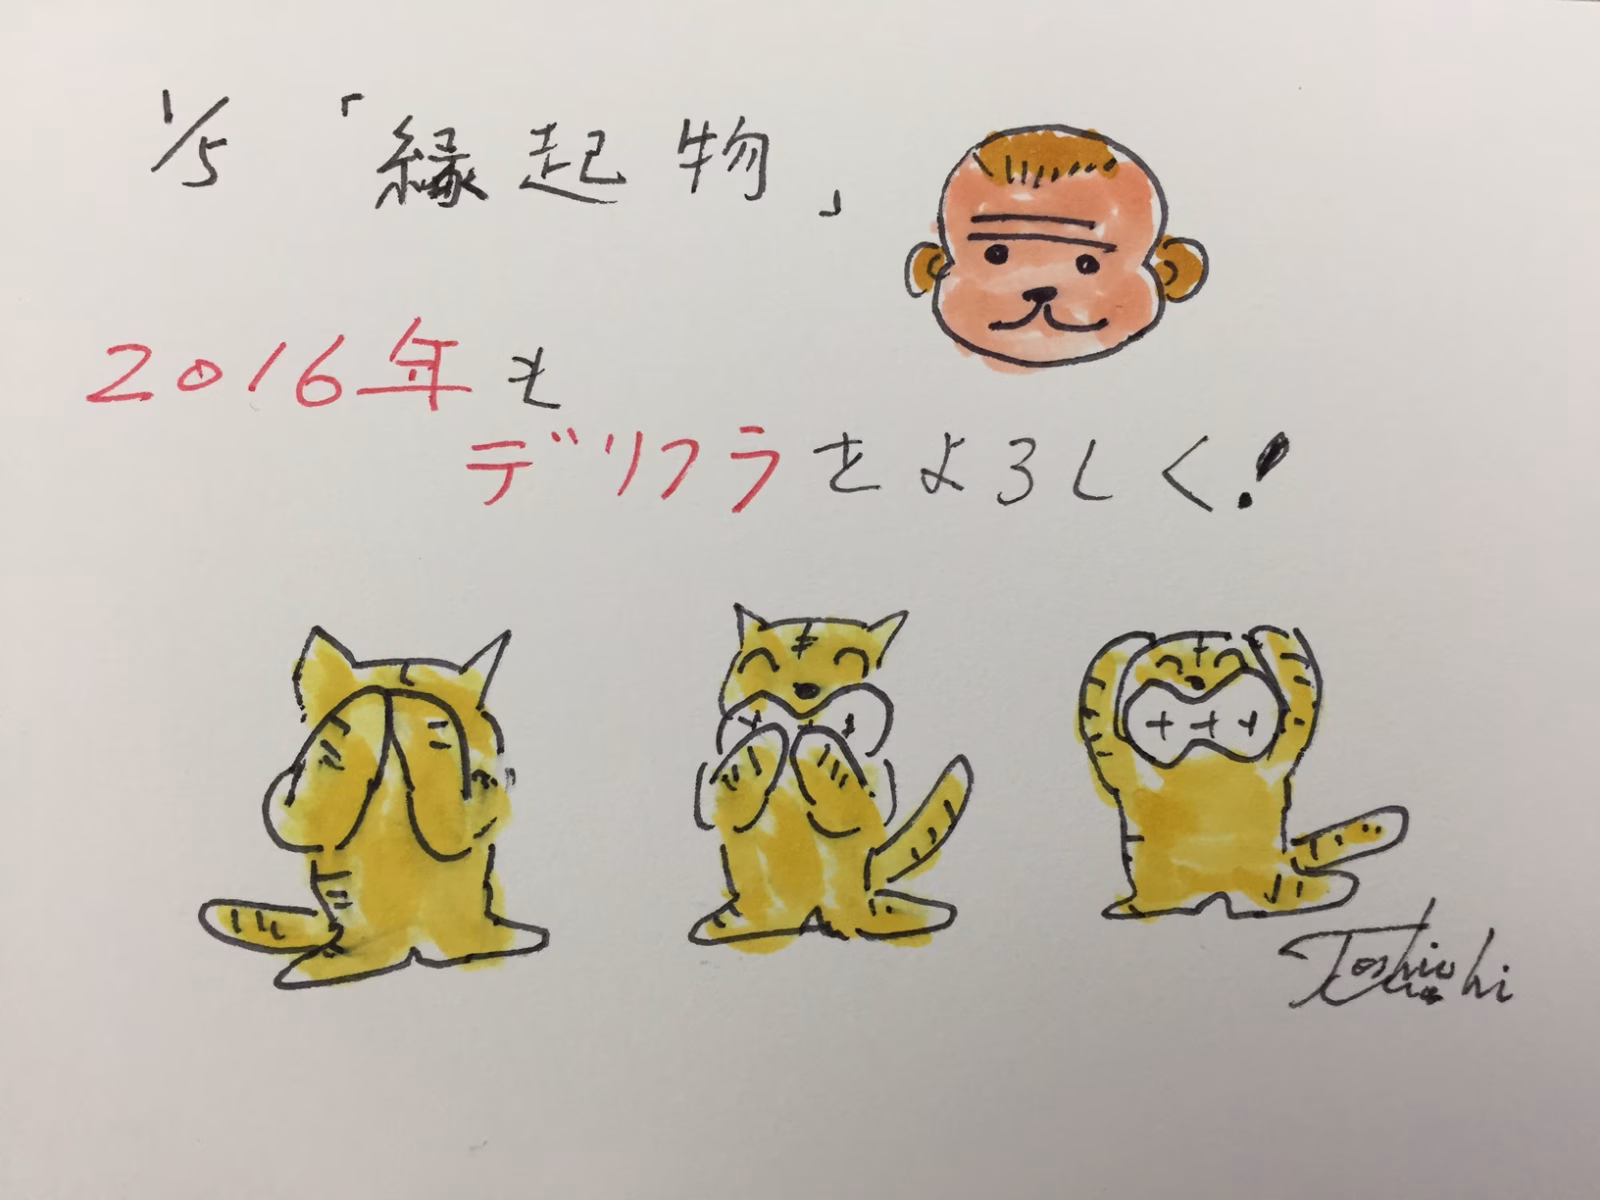 1/5 「縁起物」
2016年も
デリフラをよろしく!